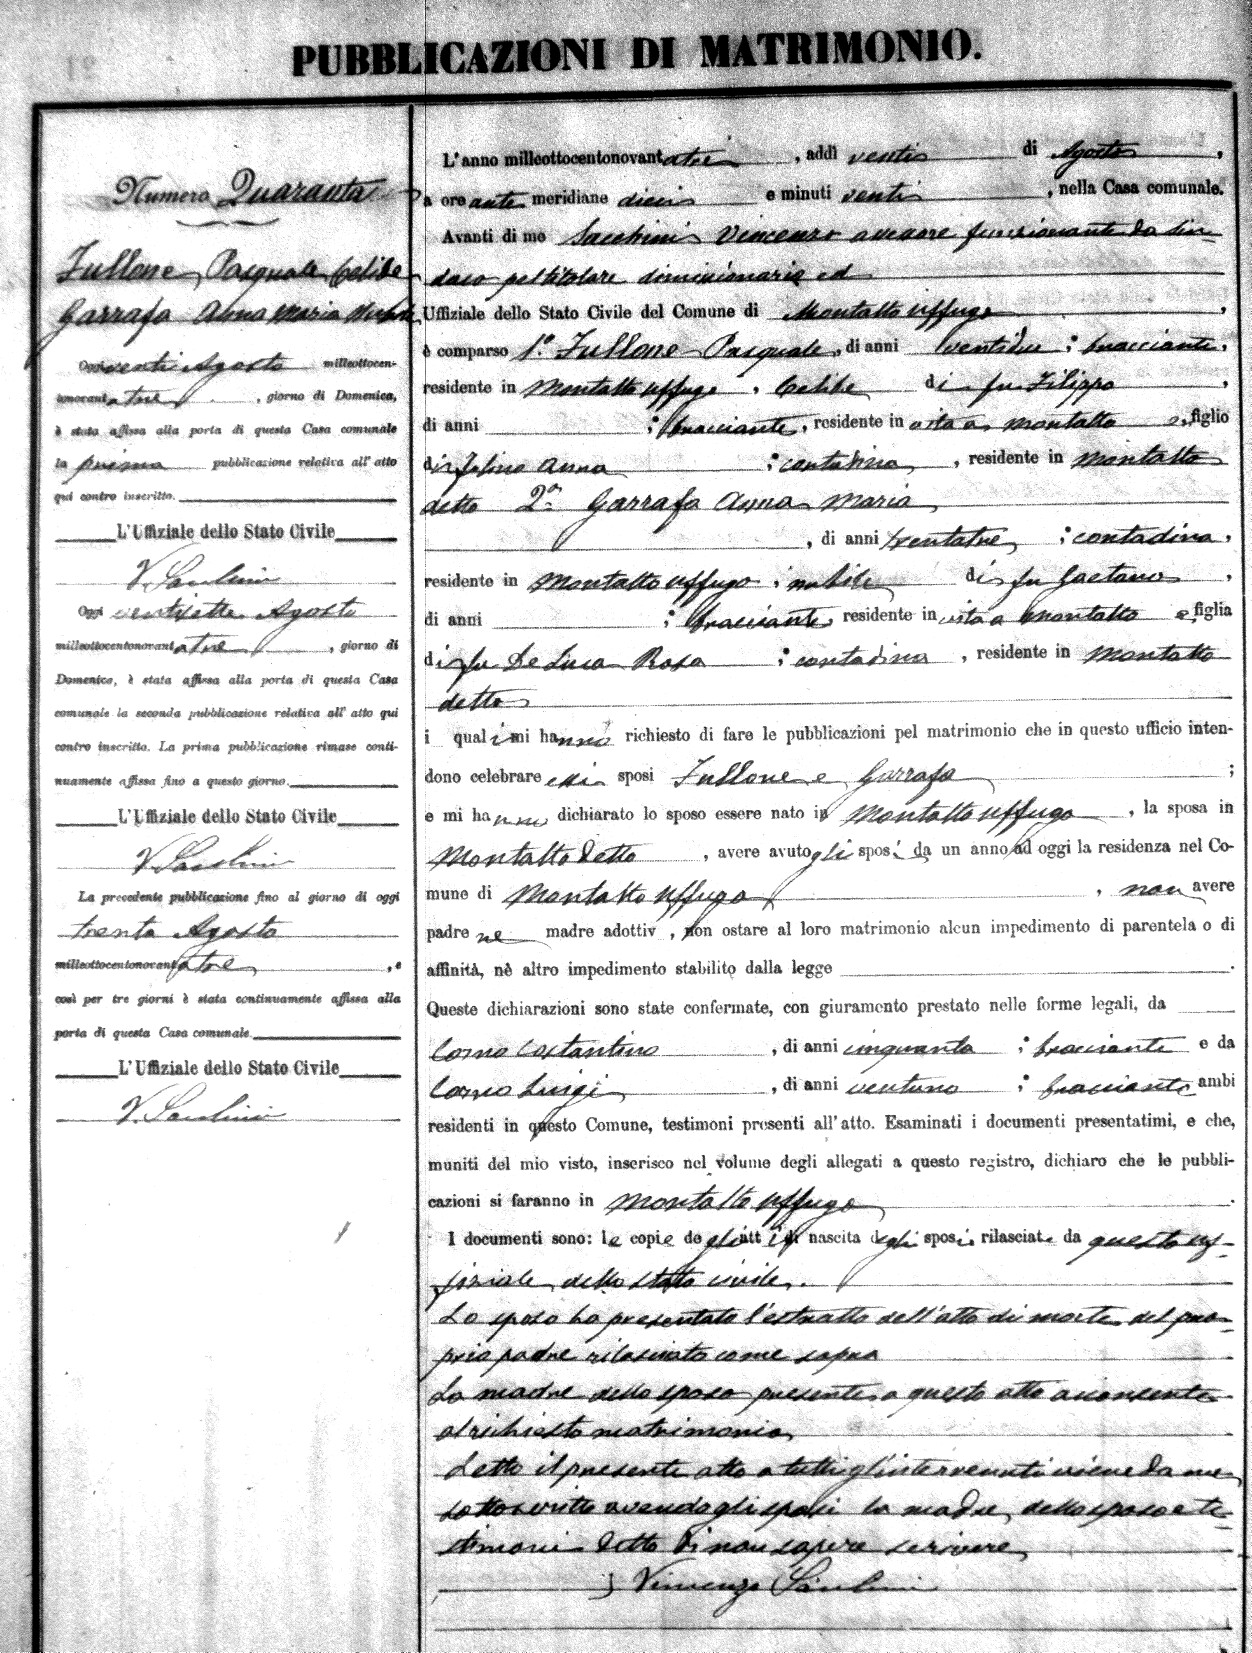 PUBBLICAZIONI DI MATRIMONIO.
Numero Quaranta
Fullone Pasquale Celibe
Garrafa Anna Maria Nubile
Oggi venti Agosto milleottocen-
tonovantatre, giorno di Domenica,
è stata affissa alla porta di questa Casa comunale
la prima pubblicazione relativa all' atto
qui contro inscritto.
L'Uffiziale dello Stato Civile
V. Sacchini
Oggi ventisette Agosto
milleottocentonovantatre, giorno di
Domenica, è stata affissa alla porta di questa Casa
comunale la seconda pubblicazione relativa all' atto qui
contro inscritto. La prima pubblicazione rimase conti-
nuamente affissa fino a questo giorno.
L'Uffiziale dello Stato Civile
V. Sacchini
La precedente pubblicazione fino al giorno di oggi
trenta Agosto
milleottocentonovantatre, e
così per tre giorni è stata continuamente affissa alla
porta di questa Casa comunale.
L'Uffiziale dello Stato Civile
V. Sacchini
L'anno milleottocentonovantatre, addì venti di Agosto,
a ore ante meridiane dieci e minuti venti, nella Casa comunale.
Avanti di me Sacchini Vincenzo assessore funzionante da Sin-
daco pel titolare dimissionario ed
Uffiziale dello Stato Civile del Comune di Montalto Uffugo,
è comparso 1.° Fullone Pasquale, di anni ventidue; bracciante,
residente in Montalto Uffugo, Celibe di fu Filippo,
di anni ; bracciante, residente in vita a Montalto e, figlio
di Anna ; contadina, residente in Montalto
detto 2.a Garrafa Anna Maria
, di anni trentatre; contadina,
residente in Montalto Uffugo; nubile di fu Gaetano,
di anni ; bracciante, residente in vita a Montalto e, figlia
di fu De Luca Rosa ; contadina, residente in Montalto
detto
i quali mi hanno richiesto di fare le pubblicazioni pel matrimonio che in questo ufficio inten-
dono celebrare essi sposi Fullone e Garrafa;
e mi hanno dichiarato lo sposo essere nato in Montalto Uffugo, la sposa in
Montalto detto, avere avuto gli sposi da un anno ad oggi la residenza nel Co-
mune di Montalto Uffugo, non avere
padre nè madre adottiv , non ostare al loro matrimonio alcun impedimento di parentela o di
affinità, nè altro impedimento stabilito dalla legge.
Queste dichiarazioni sono state confermate, con giuramento prestato nelle forme legali, da
Corno Costantino, di anni cinquanta; bracciante e da
Corno Luigi, di anni ventuno; bracciante ambi
residenti in questo Comune, testimoni presenti all'atto. Esaminati i documenti presentatimi, e che,
muniti del mio visto, inserisco nel volume degli allegati a questo registro, dichiaro che le pubbli-
cazioni si faranno in Montalto Uffugo.
I documenti sono: le copie degli atti di nascita degli sposi rilasciate da questo uf-
fiziale dello stato civile.
Lo sposo ha presentato l'estratto dell'atto di morte del pro-
prio padre rilasciato come sopra
La madre dello sposo presente a questo atto acconsente
al richiesto matrimonio
Letto il presente atto a tutti gl'intervenuti viene da me
sottoscritto avendo gli sposi la madre dello sposo e te-
stimoni detto di non sapere scrivere
Vincenzo Sacchini